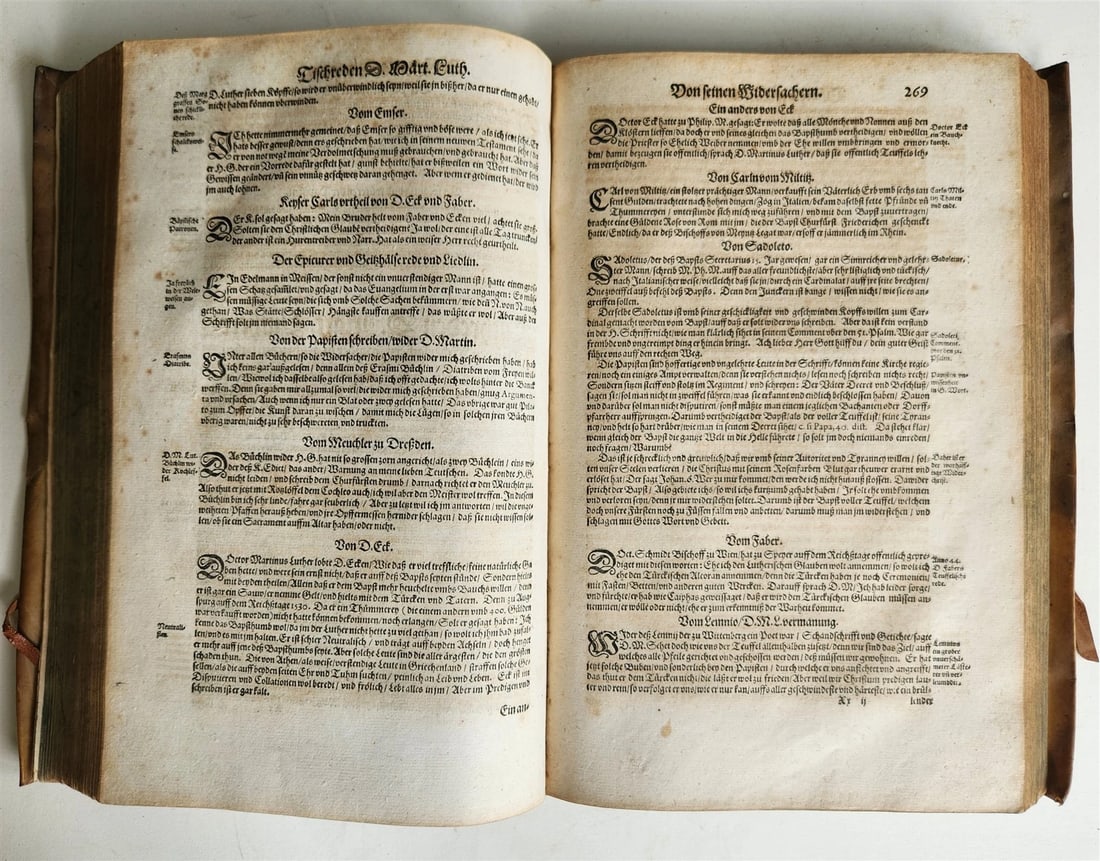 Tischreden D. Märt. Luth.
D. Luther sieben Köpffe / so wird er unüberwindlich seyn / weil sie in bißher / da er nur einen gehabt /
nicht haben können überwinden.
Vom Emser.
ICh hette nimmermehr gemeinet / daß Emser so gifftig und böse were / als ich jetzt sehe. Er
hats besser gewust / denn ers geschrieben hat / wie ich in seinem neuwen Testament sehe / da
er von not weg meine Verdolmetschung muß gebrauchen / und gebraucht hat. Aber daß
er H. G. der ein Vorrede dafür gestelt hat / gunst behielte / hat er bißweilen ein Wort wider sein
Gewissen geändert / und sein unnütz geschwetz daran gehenget. Aber wem er gedienet hat / der wird
jm auch lohnen.
Keyser Carls urtheil von D. Eck und Faber.
DEr K. sol gesagt haben: Mein Bruder helt vom Faber und Ecken viel / achtet sie groß /
Solten sie den Christlichen Glaube vertheidigen? Ja wol / der eine ist alle Tag truncken /
der ander ist ein Hurentreiber und Narr. Hat als ein weiser Herr recht geurtheilt.
Der Epicurer und Geitzhälse rede und Liedlin.
EIn Edelmann in Meissen / der sonst nicht ein unverstendiger Mann ist / hatte einen gros-
sen Schatz gesamlet / und gesagt / da das Euangelium in der erst war angangen: Es müs-
sen müssige Leute seyn / die sich umb Solche Sachen bekümmern / wie deñ N. von N. auch
gethan / Was Stätte / Schlösser / Hängste kauffen antreffe / das wüßte er wol / Aber auß der
Schrifft sol jm niemand sagen.
Von der Papisten schreiben / wider D. Martin.
UNter allen Büchern / so die Widersacher / die Papisten wider mich geschrieben haben / hab
ich keins gar außgelesen / denn allein deß Erasmi Büchlin / Diatriben vom Freyen wil-
len / Wiewol ich dasselb also gelesen hab / daß ich offt gedachte / ich wolts hinter die Banck
werffen. Denn sie gaben mir allzumal so viel / die wider mich geschrieben haben / gnug Argumen-
ta und ursachen / Auch wenn ich nur ein Blat oder zwey gelesen hatte / Das übrige war gut Pila-
to zum Opffer / die Kunst daran zu wischen / damit mich die Lügen / so in solchen jren Büchern
überig waren / nicht zu sehr beschwereten und truckten.
Vom Meuchler zu Dreßden.
DAs Büchlin wider H. G. hat mir so grossen zorn angericht / als zwey Büchlein / eins wi-
der deß K. Edict / das ander / Warnung an meine lieben Teutschen. Das kondte H. G.
nicht leiden / und schreib dem Churfürsten drumb / darnach richtet er den Meuchler zu.
Also thut er jetzt mit Rotzlöffel dem Cochleo auch / ich wil aber den Meister wol treffen. In diesem
Büchlin bin ich sehr linde / fahre gar seuberlich / Aber zu letzt wil ich jm antworten / wil die unge-
weiheten Pfaffen herauß heben / und jre Opffermessen hernider schlagen / daß sie nicht wissen sol-
len / ob sie ein Sacrament auffm Altar haben / oder nicht.
Von D. Eck.
DOctor Martinus Luther lobte D. Ecken / Wie daß er viel treffliche / seine natürliche Ga-
ben hette / und were sein ernst nicht / daß er auff deß Bapsts septen stünde / Sondern hielts
mit beyden theilen / Allein daß er dem Bapst mehr heuchelte umbs Bauchs willen / denn
er ist gar ein Sauw / er nemme Gelt / und hielts mit den Türcken und Tatern. Denn zu Aug-
spurg auff dem Reichßtage 1530. Da er ein Thümmerey (die einem andern umb 400. Gülden
war verkaufft worden) nicht hatte können bekommen / noch erlangen / Solt er gesagt haben: Ich
kenne das Bapsthumb wol / da jm der Luther nicht hette zu viel gethan / so wolt ich jhm bad zufal-
len / und es mit jm halten. Er ist schier Neutralisch / und trägt auff beyden Achseln / doch henget
er mehr auff jene deß Bapsthumbs seyte. Aber solche Leute sind die aller ärgesten / die den grösten
schaden thun. Die von Athen / als weise / verstendige Leute in Griechenland / straffen solche Ge-
sellen / als die auff beyden seiten Ehr und Ruhm suchten / peinlich an Leib und Leben. Eck ist im
Disputiren und Collationen wol beredt / und frölich / Lebt alles in jm / Aber im Predigen und
schreiben ist er gar kalt.
Ein an-
Emsers
schalckswo-
Bäpstische
Patronen.
Erasmus
Diatribe.
D. M. Lut.
Büchlin wi-
der Kochlef-
fel.
Neutrali-
sten.
Von seinen Widersachern. 269
Ein anders von Eck
DOctor Eck hatte zu Philip. M. gesagt: Er wolte / daß alle Mönche und Nonnen auß den
Klöstern lieffen / da doch er und seines gleichen das Bapsthumb vertheidigen / und wollen
die Priester so Ehelich Weiber nemmen / umb der Ehe willen umbringen und ermor-
den / damit bezeugen sie offentlich / sprach D. Martinus Luther / daß sie offentlich Teuffels leh-
ren vertheidigen.
Von Carln vom Miltitz.
CArl von Miltitz / ein stoltzer prächtiger Mann / verkaufft sein Väterlich Erb umb sechs tau-
sent Gülden / trachtet nach hohen dingen / Zog in Italien / bekam daselbst fette Pfründe und
Thummereyen / unterstunde sich mich weg zuführen / und mit dem Bapst zuvertragen /
brachte eine Güldene Rose von Rom mit jm / die der Bapst Churfürst Friederichen geschenckt
hatte / Endlich / da er deß Bischoffs von Meyntz Legat war / ersoff er jämmerlich im Rhein.
Von Sadoleto.
SAdoletus / der deß Bapsts Secretarius 15. Jar gewesen / gar ein Sinnreicher und gelehr-
ter Mann / schreib M. Ph. M. auff das aller freundlichste / aber sehr listiglich und tückisch /
nach Italianischer weise / vielleicht daß sie jn / durch ein Cardinalat / auff jre seite brechten /
One zweiffel auß befehl deß Bapsts. Denn den Junckern ist bange / wissen nicht / wie sie es an-
greiffen sollen.
Derselbe Sadoletus ist umb seiner geschickligkeit und geschwinden Kopffs willen zum Car-
dinal gemacht worden vom Bapst / auff daß er solt wider uns schreiben. Aber da ist kein verstand
in der H. Schrifft nicht / wie man klärlich sihet in seinem Comment uber den 51. Psalm. Wie gar
frembde und ungereimpt ding er hinein bringt. Ach lieber Herr Gott hilff du / dein guter Geist
führe uns auff den rechten Weg.
Die Papisten sind hoffertige und ungelehrte Leute in der Schrifft / können keine Kirche regie-
ren / noch ein einiges Ampt verwalten / denn sie verstehen nichts / lesen noch schreiben nichts recht /
Sondern sitzen steiff und stoltz im Regiment / und schreyen: Der Väter Decret und Beschluß
sagen sie / sol man nicht in zweiffel führen / was sie erkant und endlich beschlossen haben / Davon
und darüber sol man nicht disputiren / sonst müßte man einem jeglichen Bachanten oder Dorff-
pfarrherr auffspringen. Darumb vertheidiget der Bapst / als der voller Teuffel ist / seine Tyran-
ney / und helt so hart drüber / wie man in seinem Decret sihet / c. si Papa, 40. dist. Da stehet klar /
wenn gleich der Bapst die gantze Welt in die Helle führete / so solt jm doch niemands einreden /
noch fragen / Warumb?
Das ist je schrecklich und greuwlich / daß wir umb seiner Autoritet und Tyranney willen / sol-
ten unser Seelen verlieren / die Christus mit seinem Rosenfarben Blut gar theuwer ertarnt und
erlöset hat / Der sagt Johan. 6. Wer zu mir kommet / den werde ich nicht hinauß stossen. Dawider
spricht der Bapst / Also gebiete ichs / so wil ichs kurtzumb gehabt haben / Jr solt ehe umbkommen
und verloren seyn / denn jr mir widerstehen soltet. Darumb ist der Bapst voller Teuffel / welchem
doch unsere Fürsten noch zu Füssen fallen und anbeten / darumb muß man jm widerstehen / und
schlagen mit Gottes Wort und Gebett.
Vom Faber.
DOct. Schmidt Bischoff zu Wien / hat zu Speyer auff dem Reichßtage offentlich gepre-
diget mit diesen worten: Ehe ich den Lutherischen Glauben wolt annemmen / so wolt ich
ehe den Türckischen Alcoran annemmen / denn die Türcken haben je noch Ceremonien /
mit Fasten / Betten / und anderen guten Wercken. Darauff sprach D. M. Ich hab leider sorge /
und fürchte / er hab wie Caiphas geweissaget / daß er wird den Türckischen Glauben müssen an-
nemmen / er wölle oder nicht / ehe er zum erkentniß der Warheit kommet.
Vom Lemnio / D. M. L. vermanung.
WIder deß Lemnij der zu Wittenberg ein Poet war / Schandschrifft und Getichte / sagte
D. M. Sehet doch wie uns der Teuffel allenthalben zusetzt / denn wir sind das Ziel / auff
welches alle Pfeile gerichtet und geschossen werden / deß müssen wir gewohnen. Er hat
jetzt solche Buben / und sonderlich bey den Papisten / durch welcher er uns anfichtet und angreifft /
das thut er dem Türcken nicht / die läßt er wol zu frieden / Aber weil wir Christum predigen lau-
ter und rein / so verfolget er uns / wie er nur kan / auffs aller geschwindeste und härteste / wie ein brül-
Xx ij
lender
Doctor Eck
ein Bauch-
knecht.
Carls Mil-
titz Thaten
und ende.
Sadoletus.
Sadoleti
Comment.
uber den 51.
Psalm.